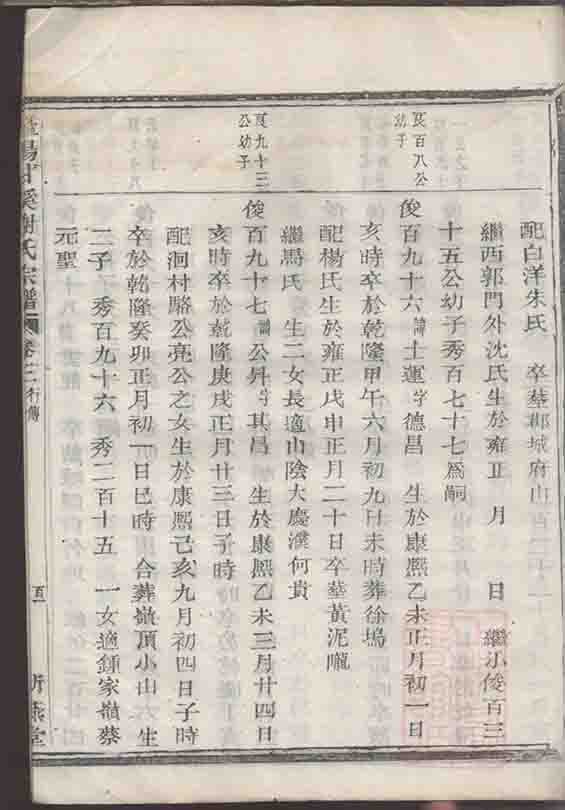 配白洋朱氏　卒葬郡城府山
繼西郭門外沈氏生於雍正　月　日　繼永俊百三
十五公幼子秀百七十七爲嗣
良百八公
幼子
俊百九十六諱士運字德昌　生於康熙乙未正月初一日
亥時卒於乾隆甲午六月初九日未時葬徐塢
配楊氏生於雍正戊申正月二十日卒葬黃泥嚨
繼馬氏　生二女長適山陰大慶濮何貴
良九十三
公幼子
俊百九十七諱公昇字其昌　生於康熙乙未三月廿四日
亥時卒於乾隆庚戌正月廿三日子時
配洄村駱公亮公之女生於康熙己亥九月初四日子時
卒於乾隆癸卯正月初一日巳時　合葬嶺頂小山　生
二子　秀百九十六　秀二百十五　一女適鍾家嶺蔡
元聖
陽　溪謝氏宗譜　卷二　行傳